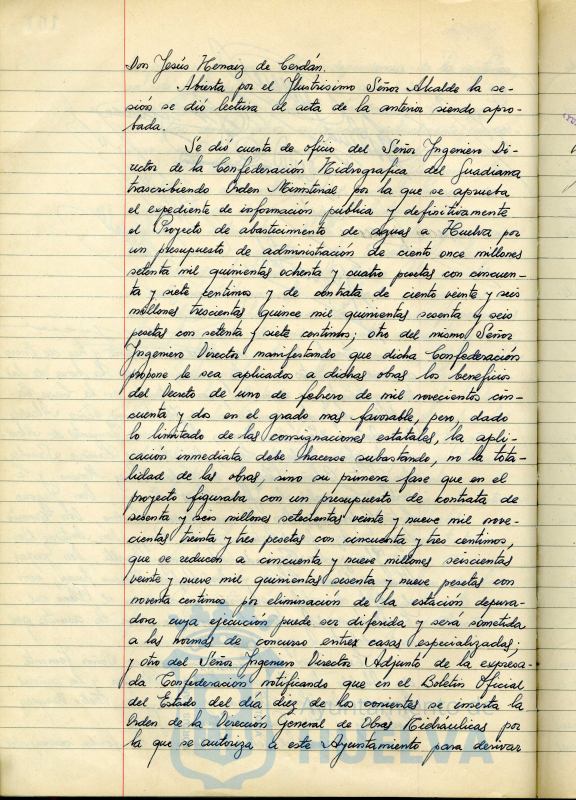 Don Jesús Henaiz de Cerdán.
Abierta por el Ylustrisimo Señor Alcalde la se-
sión se dió lectura al acta de la anterior siendo apro-
bada.
Se dió cuenta de oficio del Señor Yngeniero Di-
rector de la Confederación Hidrografica del Guadiana
trascribiendo Orden Ministerial por la que se aprueba
el expediente de información pública y definitivamente
el Proyecto de abastecimiento de aguas a Huelva por
un presupuesto de administración de ciento once millones
setenta mil quinientas ochenta y cuatro pesetas con cincuen-
ta y siete centimos y de contrata de ciento veinte y seis
millones trescientas quince mil quinientas sesenta y seis
pesetas con setenta y siete centimos; otro del mismo Señor
Yngeniero Director manifestando que dicha Confederación
propone le sea aplicados a dichas obras los beneficios
del Decreto de uno de febrero de mil novecientos cin-
cuenta y dos en el grado mas favorable, pero, dado
lo limitado de las consignaciones estatales, la apli-
cación inmediata debe hacerse subastando, no la tota-
lidad de las obras, sino su primera fase que en el
proyecto figuraba con un presupuesto de kontrata de
sesenta y seis millones setecientas veinte y nueve mil nove-
cientas treinta y tres pesetas con cincuenta y tres centimos,
que se reducen a cincuenta y nueve millones seiscientas
veinte y nueve mil quinientas sesenta y nueve pesetas con
noventa centimos por eliminación de la estación depura-
dora cuya ejecución puede ser diferida y será sometida
a las normas de concurso entres casas especializadas;
y otro del Señor Yngeniero Director Adjunto de la expresa-
da Confederación notificando que en el Boletin Oficial
del Estado del día diez de los corrientes se inserta la
Orden de la Dirección General de Obras Hidráulicas por
la que se autoriza a este Ayuntamiento para derivar
HUELVA